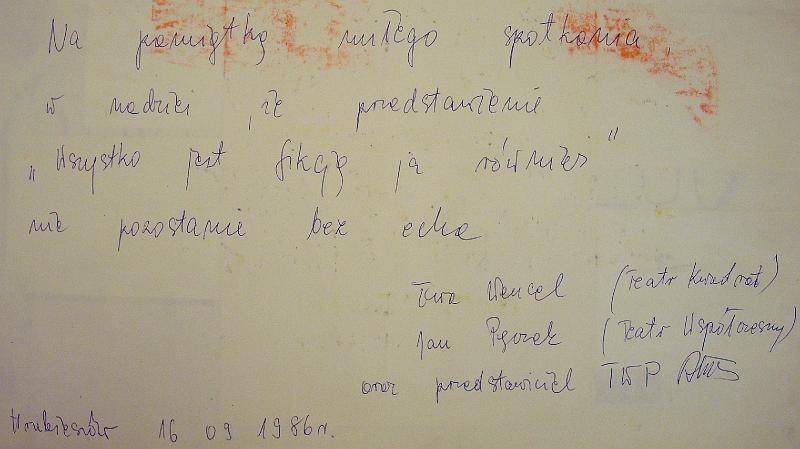 Na pamiątkę miłego spotkania,
w nadziei, że przedstawienie
„Wszystko jest fikcją ja również"
nie pozostanie bez echa
Ewa Wencel (Teatr Kwadrat)
Jan Pęczek (Teatr Współczesny)
oraz przedstawiciel TWP
Hrubieszów 16 09 1986 r.